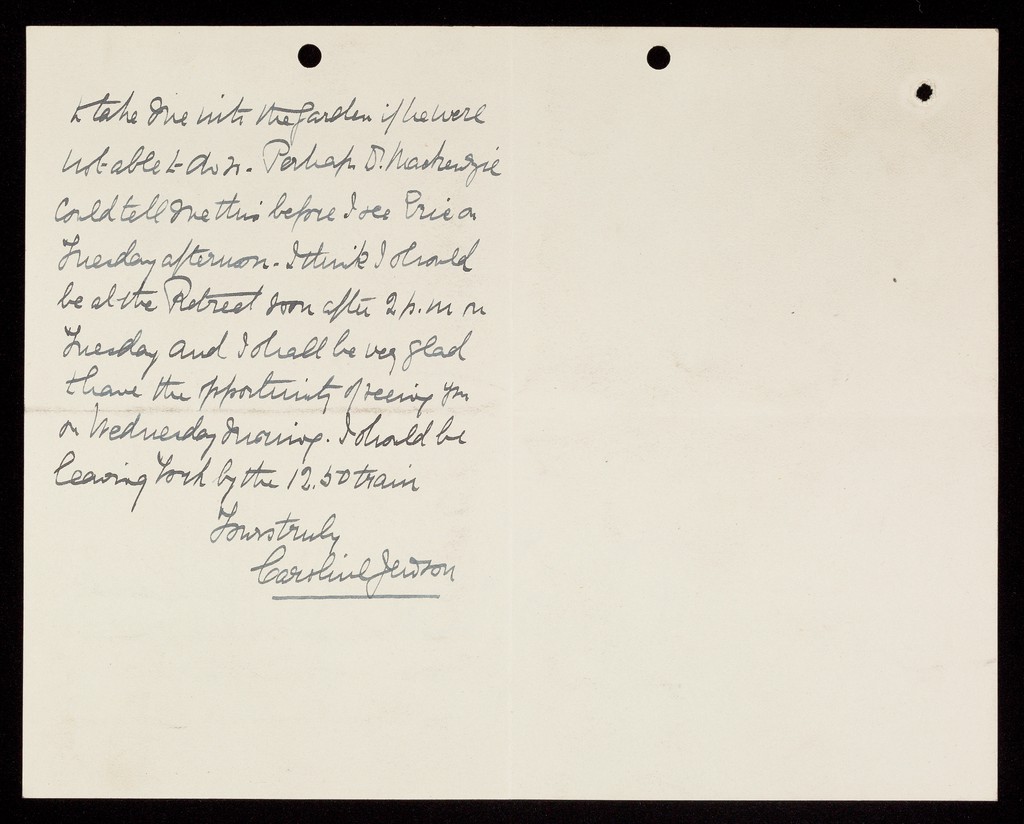 to take me into the garden if he were
not able to do so. Perhaps Dr. Mackenzie
could tell me this before I see Eric on
Tuesday afternoon. I think I should
be at the Retreat soon after 2 p.m on
Tuesday and I shall be very glad
to have the opportunity of seeing you
on Wednesday morning. I should be
leaving York by the 12.50 train
Yours truly
Caroline Jewson